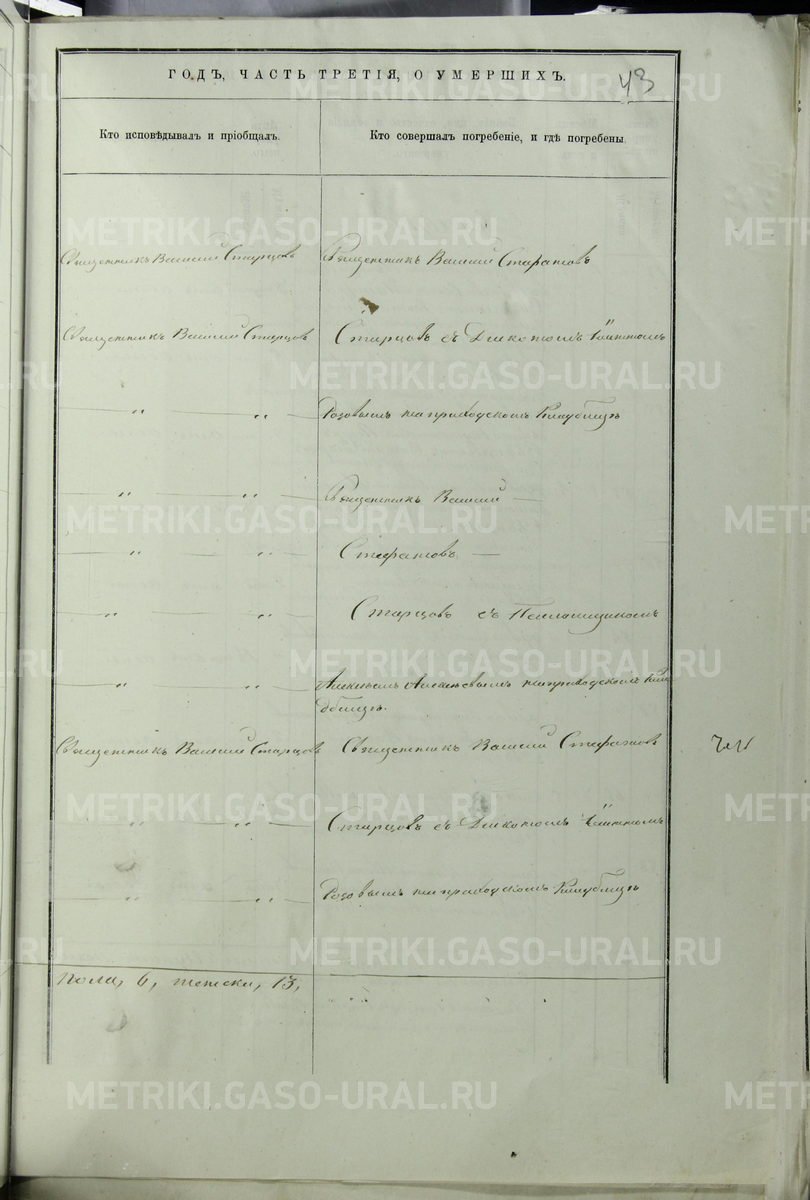 ГОДЪ, ЧАСТЬ ТРЕТІЯ, О УМЕРШИХЪ.
43
Кто исповѣдывалъ и пріобщалъ.
Кто совершалъ погребеніе, и гдѣ погребены.
Священникъ Василій Старцовъ
Священникъ Василій Стефановъ
Священникъ Василій Старцов
Старцовъ съ Дьякономъ
— " — " —
Розовымъ на приходскомъ Кладбищѣ
— " — " —
Священникъ Василій —
— " — " —
Стефановъ —
— " — " —
Старцовъ съ Псаломщикомъ
— " — " —
на приходскомъ Кла
дбищѣ.
Священникъ Василій Старцовъ
Священникъ Василій Стефановъ
— " — " —
Старцовъ съ Дьякономъ
— " — " —
Розовымъ на приходскомъ Кладбищѣ
пола, 6, женска, 13,
METRIKI.GASO-URAL.RU